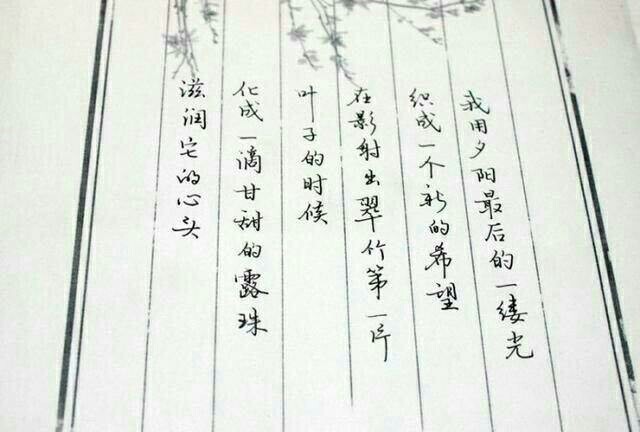 我用夕阳最后的一缕光
织成一个新的希望
在影射出翠竹第一片
叶子的时候
化成一滴甘甜的露珠
滋润它的心头